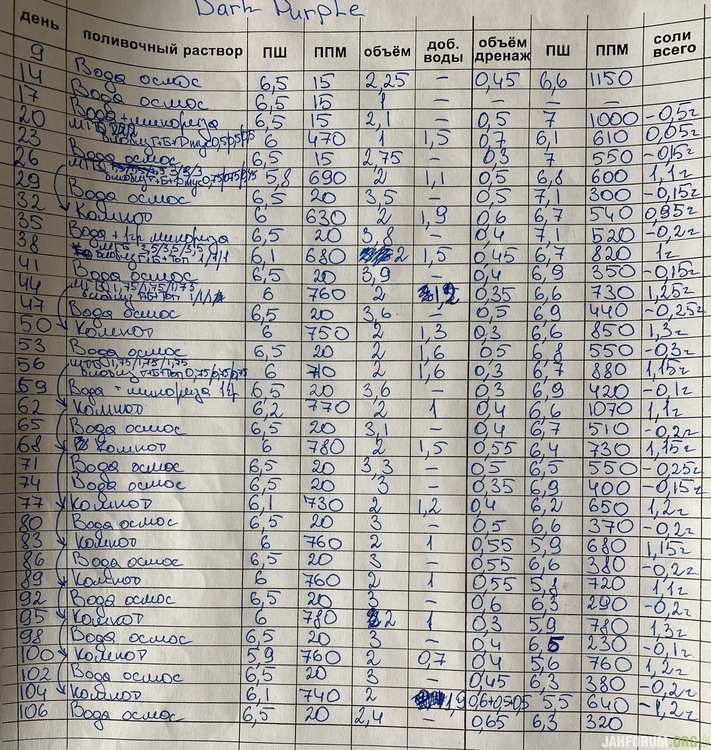 Dark Purple
день поливочный раствор ПШ ППМ объём доб. воды объём дренаж ПШ ППМ соли всего
9
14 Вода осмос 6,5 15 2,25 – 0,45 6,6 1150
17 Вода осмос 6,5 15 1 – – – –
20 Вода + микориза 6,5 15 2,1 – 0,5 7 1000 -0,5г
23 6 470 1 1,5 0,7 6,1 610 0,05г
26 Вода осмос 6,5 15 2,75 – 0,3 7 550 -0,5г
29 5,8 690 2 1,1 0,5 6,8 600 1,1г
32 Вода осмос 6,5 20 3,5 – 0,5 7,1 300 -0,15г
35 Компот 6 630 2 1,9 0,6 6,7 540 0,95г
38 Вода + 1гр микориза 6,5 20 3,8 – 0,4 7,1 520 -0,2г
41 6,1 680 2 1,5 0,45 6,7 820 1г
44 Вода осмос 6,5 20 3,9 – 0,4 6,9 350 -0,15г
47 6 760 2 1,2 0,35 6,6 730 1,25г
50 Вода осмос 6,5 20 3,6 – 0,5 6,9 440 -0,25г
53 Компот 6 750 2 1,3 0,3 6,6 850 1,3г
56 Вода осмос 6,5 20 2 1,6 0,5 6,8 550 -0,3г
59 6 710 2 1,6 0,3 6,7 880 1,15г
62 Вода + микориза 1гр 6,5 20 3,6 – 0,3 6,9 420 -0,1г
65 Компот 6,2 770 2 1 0,4 6,6 1070 1,1г
68 Вода осмос 6,5 20 3,1 – 0,4 6,7 510 -0,2г
71 Компот 6 780 2 1,5 0,55 6,4 730 1,15г
74 Вода осмос 6,5 20 3,3 – 0,5 6,5 550 -0,25г
77 Вода осмос 6,5 20 3 – 0,35 6,9 400 -0,15г
80 Компот 6,1 730 2 1,2 0,4 6,2 650 1,2г
83 Вода осмос 6,5 20 3 – 0,5 6,6 370 -0,2г
86 Компот 6 760 2 1 0,55 5,9 680 1,15г
89 Вода осмос 6,5 20 3 – 0,55 6,6 380 -0,2г
92 Компот 6 760 2 1 0,55 5,8 720 1,1г
95 Вода осмос 6,5 20 3 – 0,6 6,3 290 -0,2г
98 Компот 6 780 2 1 0,3 5,9 780 1,3г
100 Вода осмос 6,5 20 3 – 0,4 6,5 230 -0,1г
102 Компот 5,9 760 2 0,7 0,4 5,6 760 1,2г
104 Вода осмос 6,5 20 3 – 0,45 6,3 380 -0,2г
106 Компот 6,1 740 2 1,9 5,5 640 -1,2г
Вода осмос 6,5 20 2,4 0,65 6,3 320
JAHFORUM.ORG